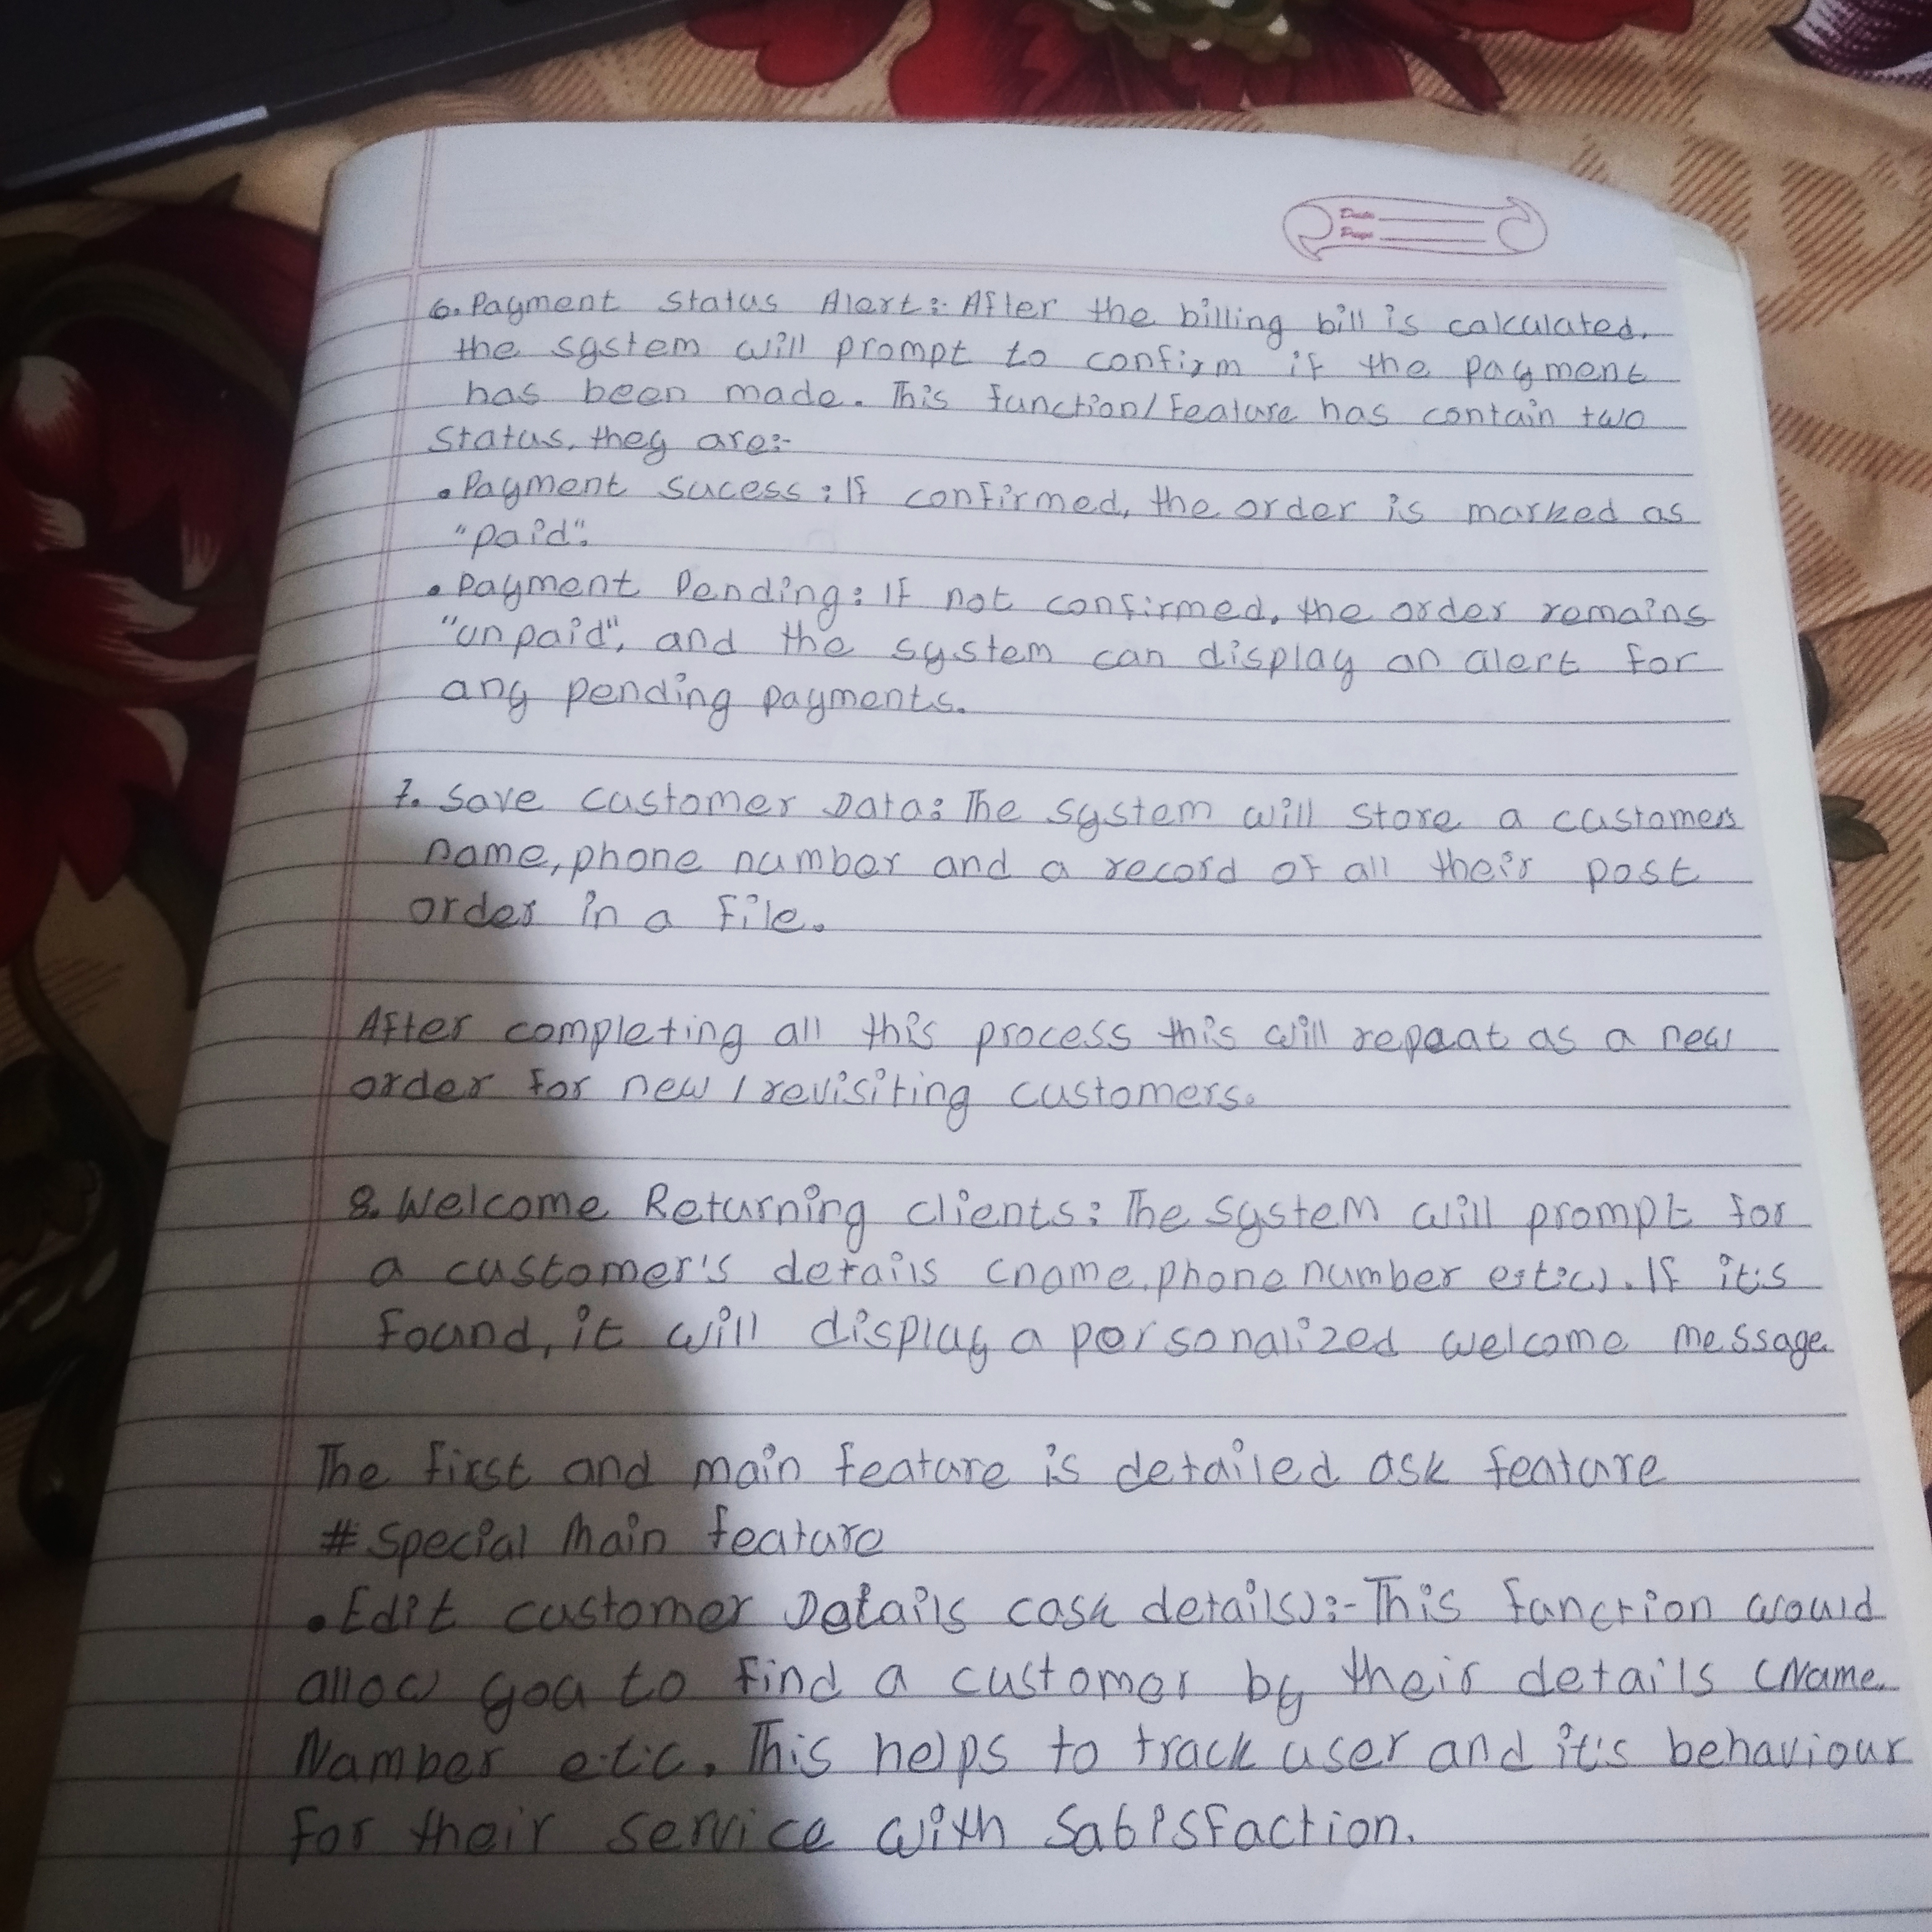 Date
Page
6. Payment Status Alert:- After the billing bill is calculated,
the system will prompt to confirm if the payment
has been made. This function/feature has contain two
status, they are:-
• Payment sucess: If confirmed, the order is marked as
"paid".
• Payment Pending: If not confirmed, the order remains
"unpaid", and the system can display an alert for
any pending payments.
7. Save customer Data: The system will store a customers
name, phone number and a record of all their past
order in a file.
After completing all this process this will repeat as a new
order for new / revisiting customers.
8. Welcome Returning clients: The system will prompt for
a customer's details (name, phone number e.t.c). If it's
found, it will display a personalized welcome message.
The first and main feature is detailed ask feature
# Special Main feature
• Edit customer Details (ask details):- This function would
allow you to find a customer by their details (Name,
Number e.t.c. This helps to track user and it's behaviour
for their service with Satisfaction.